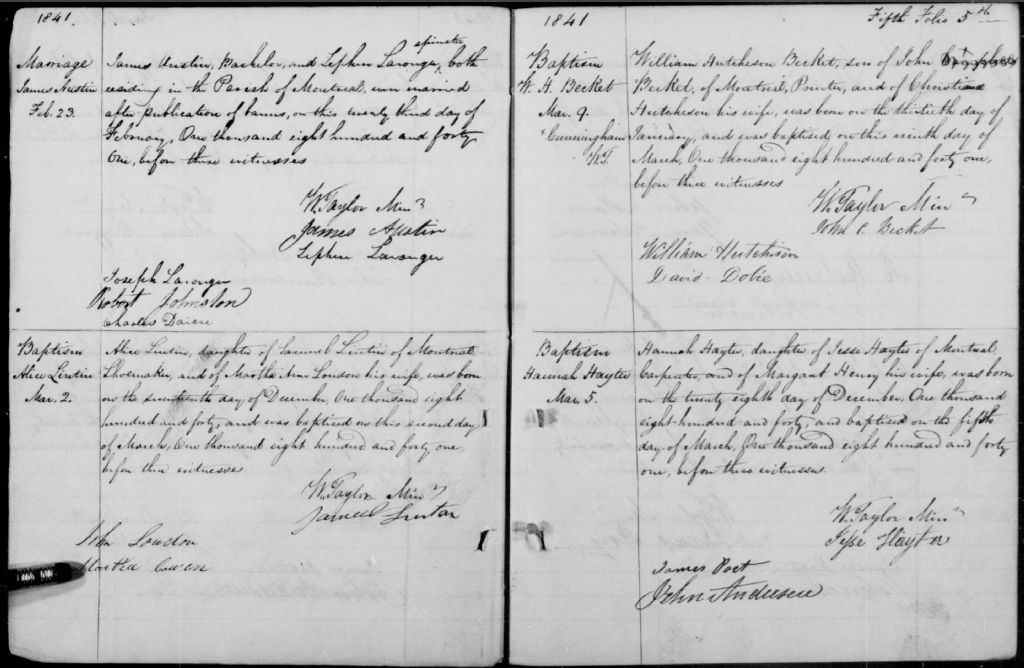 1841.
Marriage
James Austin
Feb. 23.
spinster
James Austin, Bachelor, and Sephen Laronger, both
residing in the Parish of Montreal, were married
after publication of banns, on this twenty third day of
February, One thousand eight hundred and forty
One, before these witnesses
W. Taylor Minr
James Austin
Sephen Laronger
Joseph Laronger
Robert Johnston
Charles
Baptism
Alice Linten
Mar. 2.
Alice Linten, daughter of Samuel Linten of Montreal
Shoemaker, and of Martha Ann London his wife, was born
on the seventeenth day of December, One thousand eight
hundred and forty, and was baptised on this second day
of March, One thousand eight hundred and forty one,
before these witnesses
W. Taylor Minr
Samuel Linton
John London
Martha
1841
Fifth Folio 5th
Baptism
W. H. Becket
Mar. 9.
+ Cunningham
W.T.
William Hutcheson Becket, son of John +
Becket, of Montreal, Printer, and of Christiana
Hutcheson his wife, was born on the thirtieth day of
January, and was baptised on this ninth day of
March, One thousand eight hundred and forty one,
before these witnesses
W. Taylor Minr
John C. Becket
William Hutchison
David Dobie
Baptism
Hannah Hayter
Mar. 5.
Hannah Hayter, daughter of Jesse Hayter of Montreal
Carpenter, and of Margaret Henry his wife, was born
on the twenty eighth day of December, One thousand
eight hundred and forty, and baptised on the fifth
day of March, One thousand eight hundred and forty
one, before these witnesses.
W. Taylor Minr
Jesse Hayter
James Poet
John Anderson